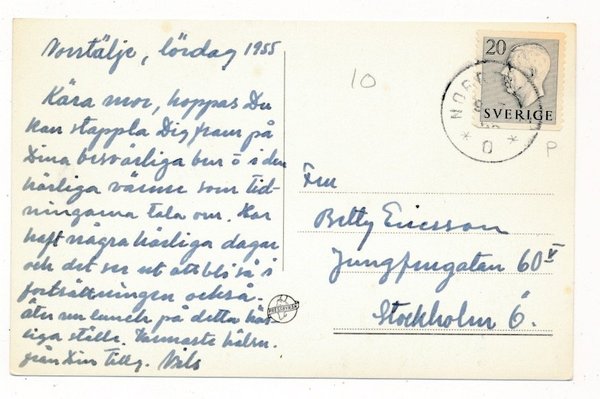 Norrtälje, lördag 1955
Kära mor, hoppas Du
kan stappla Dig fram på
Dina besvärliga ben ö i den
härliga värme som tid-
ningarna tala om. Har
haft några härliga dagar
och det ser ut att bli så i
fortsättningen också.
äter nu lunch på detta här-
liga ställe. Varmaste hälsn.
från Din tillg. Nils
10
20
SVERIGE
NORR
* O *
P
Fru
Betty Ericsson
Jungfrugatan 60 V
Stockholm Ö.